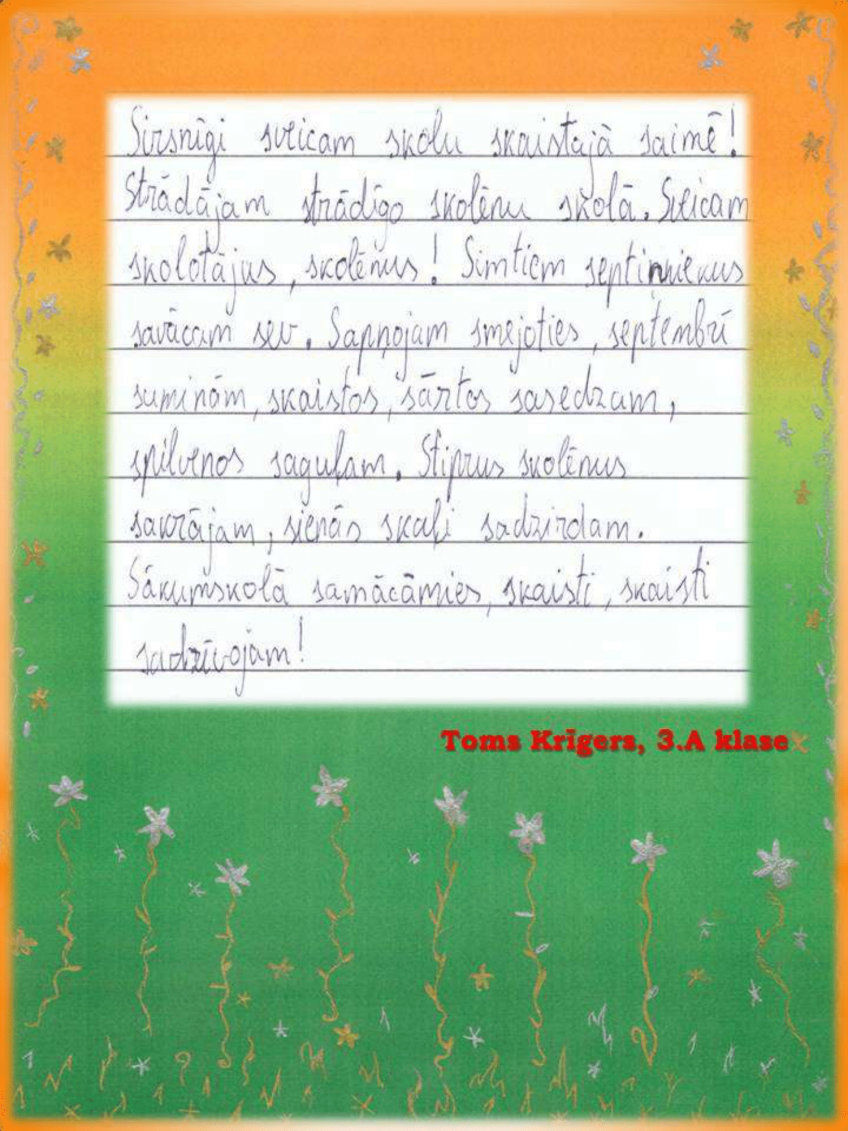 Sirsnīgi sveicam skolu skaistajā saimē!
Strādājam strādīgo skolēnu skolā. Sveicam
skolotājus, skolēnus! Simtiem septiņniekus
savācam sev. Sapņojam smejoties, septembrī
suminām, skaistos, sārtos sasedzam,
spilvenos saguļam. Stiprus skolēnus
sakrājam, sienās skaļi sadzirdam.
Sākumskolā samācāmies, skaisti, skaisti
sadzīvojam!
Toms Krīgers, 3.A klase